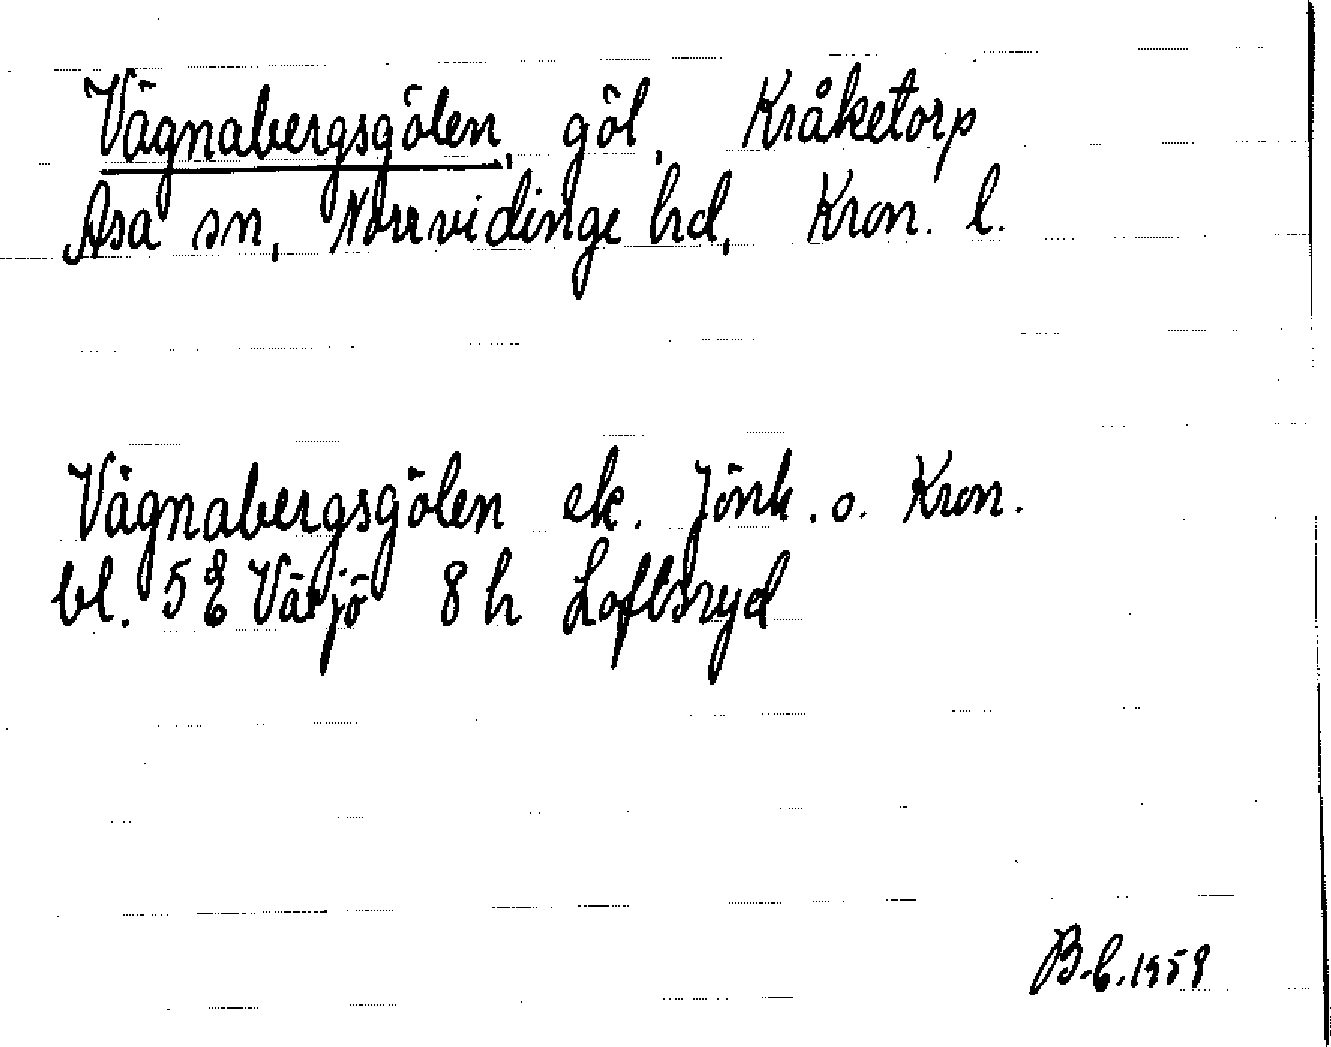 Vägnabergsgölen, göl, Kråketorp
Asa sn, Norrvidinge hd, Kron. l.
Vägnabergsgölen ek. Jönk. o. Kron.
bl. 5 E Växjö 8 h Loftsryd
B-b. 1958